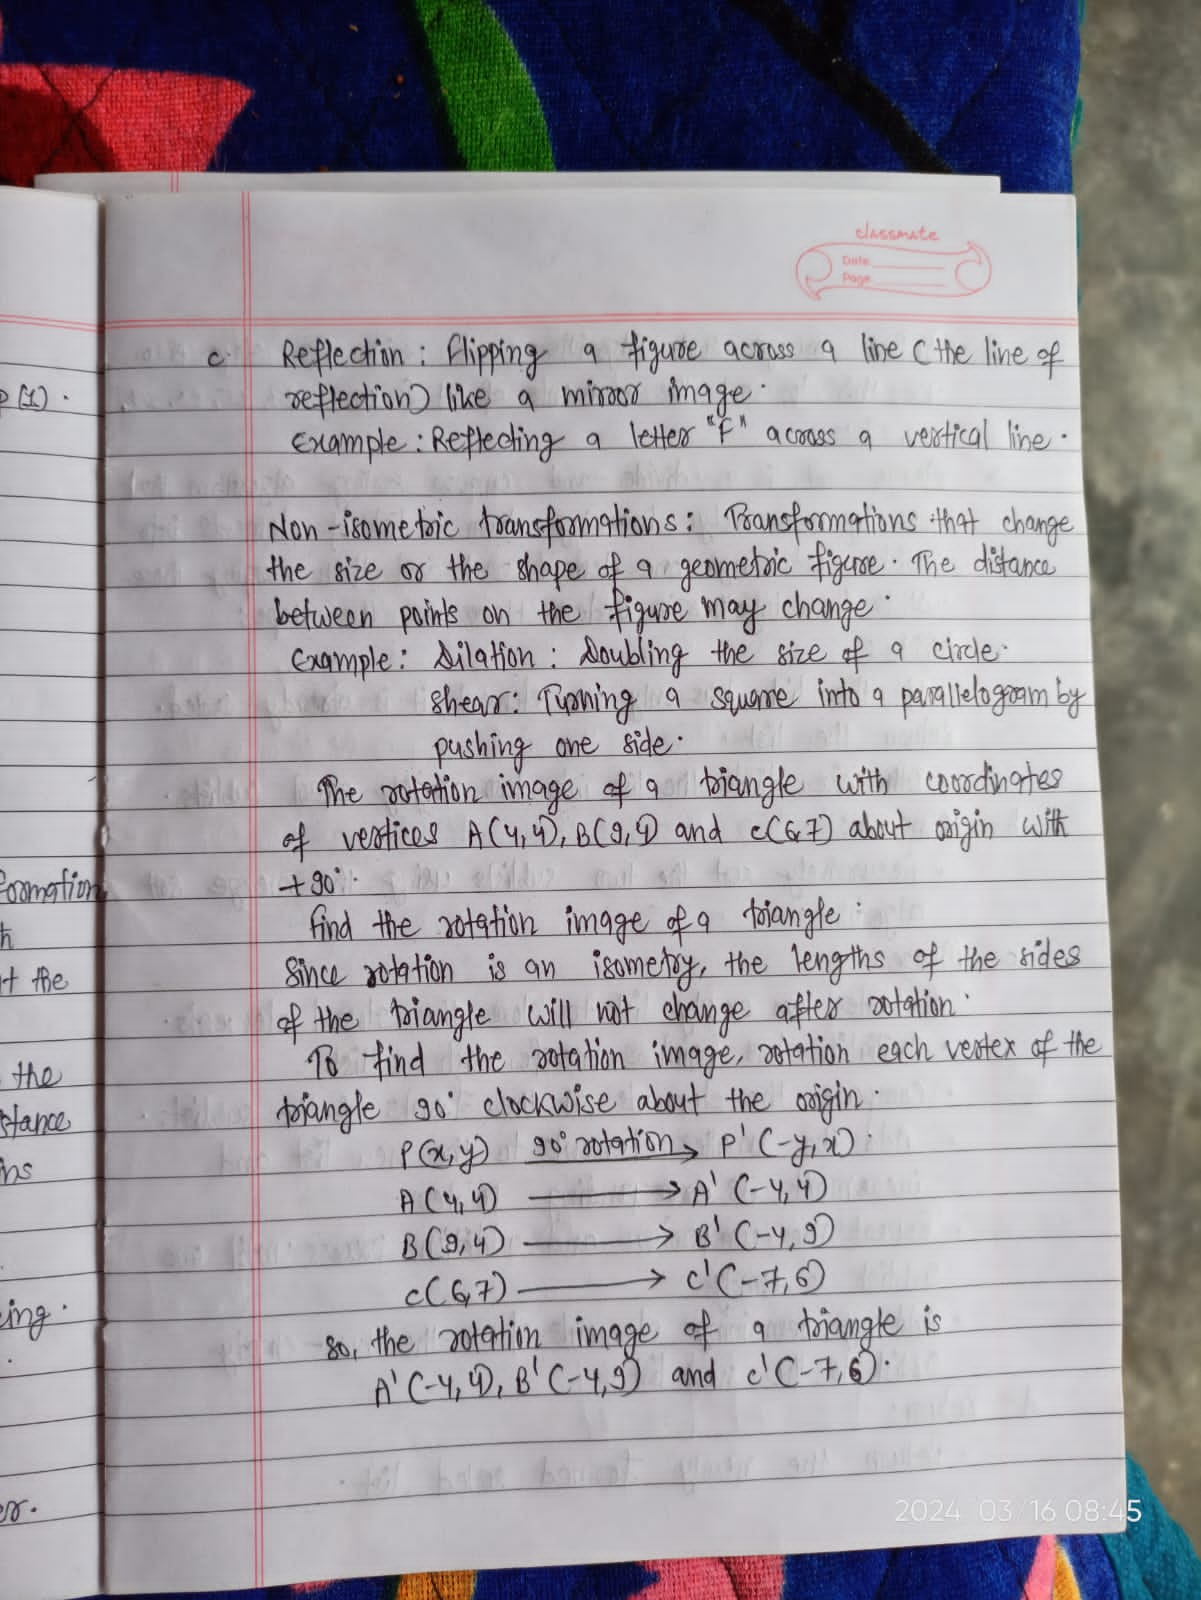 classmate
Date
Page
c. Reflection : Flipping a figure across a line (the line of
reflection) like a mirror image.
Example : Reflecting a letter "F" across a vertical line.
Non-isometric transformations : Transformations that change
the size or the shape of a geometric figure. The distance
between points on the figure may change.
Example : Dilation : Doubling the size of a circle.
shear : Turning a square into a parallelogram by
pushing one side.
The rotation image of a triangle with coordinates
of vertices A(4,4), B(9,4) and C(6,7) about origin with
+90°.
find the rotation image of a triangle :
Since rotation is an isometry, the lengths of the sides
of the triangle will not change after rotation.
To find the rotation image, rotation each vertex of the
triangle 90° clockwise about the origin.
P(x,y) 90° rotation → P'(-y,x).
A(4,4) → A'(-4,4)
B(9,4) → B'(-4,9)
C(6,7) → C'(-7,6)
So, the rotation image of a triangle is
A'(-4,4), B'(-4,9) and C'(-7,6).
P(1).
formation
the
the
ing.
2024 03/16 08:45